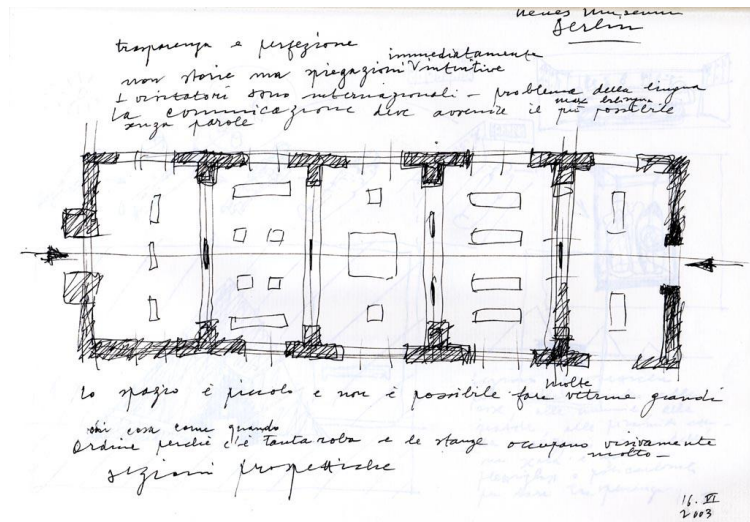 Neues Museum
Berlin
trasparenza e perfezione
non storie ma spiegazioni immediatamente intuitive
I visitatori sono internazionali - problema della lingua
max bilingue
La comunicazione deve avvenire il più possibile
senza parole
Lo spazio è piccolo e non è possibile fare molte vetrine grandi
chi cosa come quando
Ordine perché c'è tanta roba e le stanze occupano visivamente
molto -
sezioni prospettiche
16. XI
2003